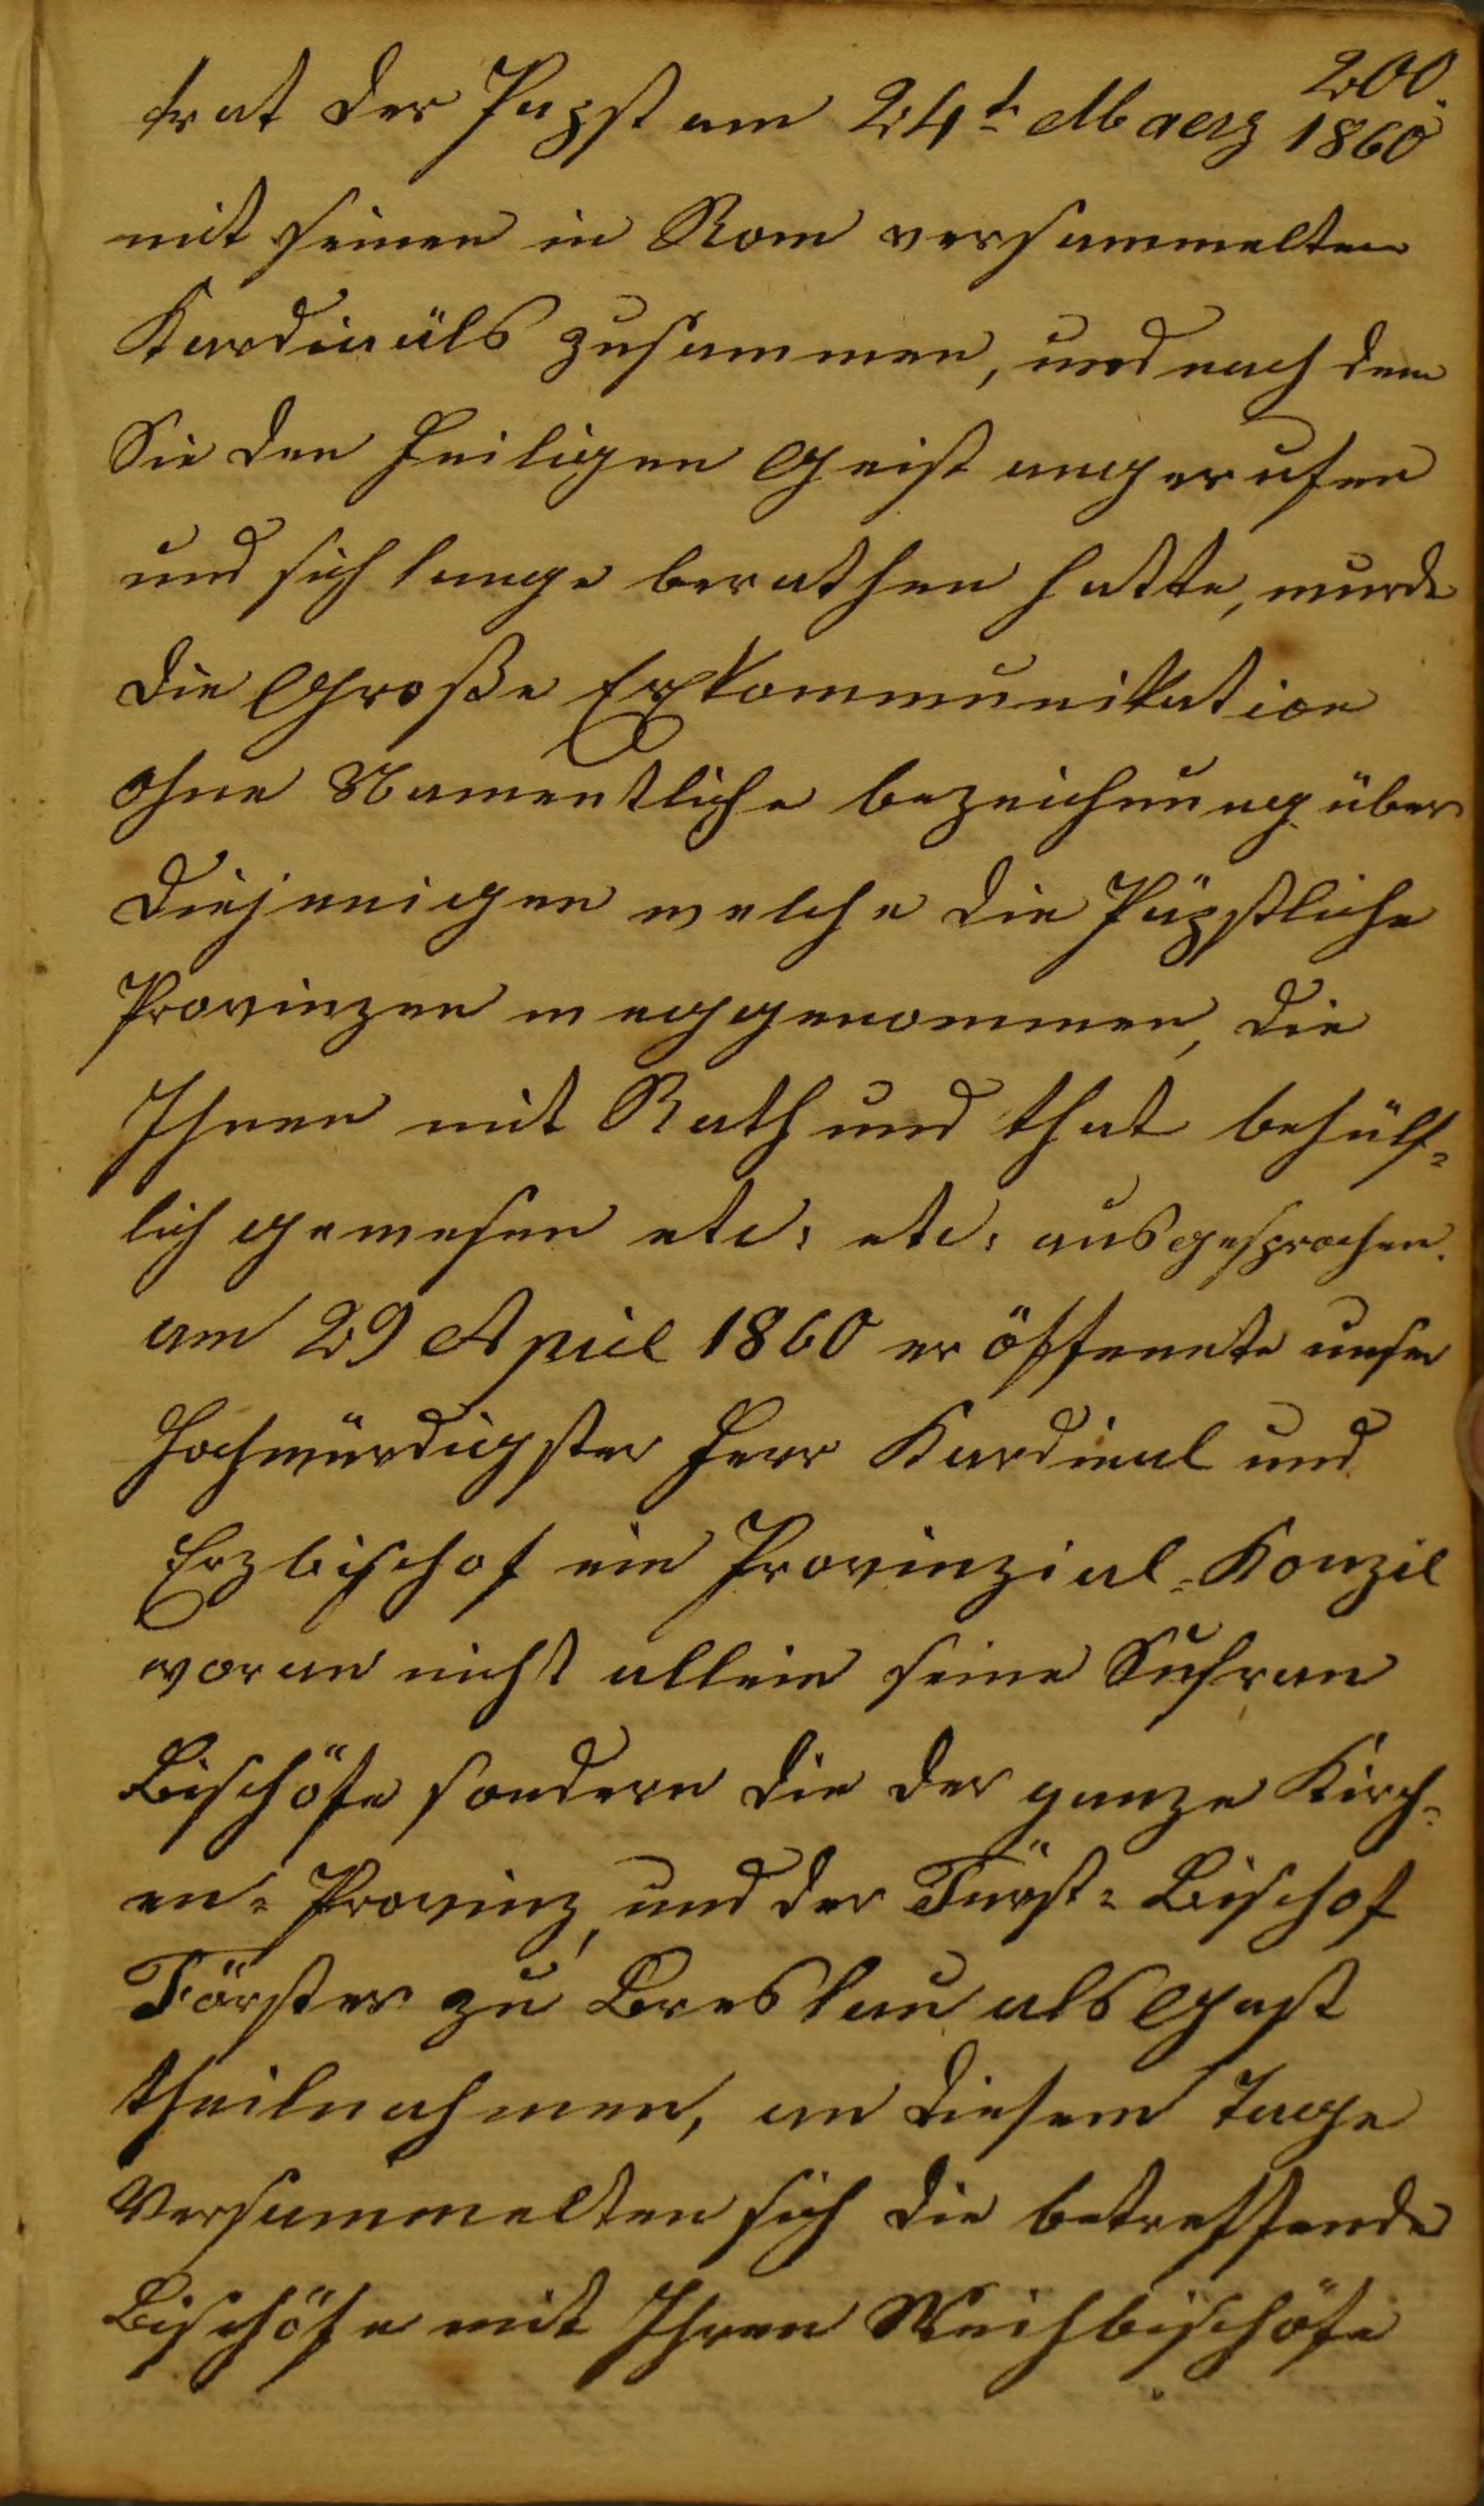 200.
trat der Papst am 24t Maerz 1860
mit seinen in Rom versammelten
Kardinäls zusammen, und nach dem
Sie den Heiligen Geist angerufen
und sich lange berathen hatte, wurde
die Große Exkommunikation
ohne Namentliche bezeichnung über
diejenigen welche die Päpstliche
Provinzen weggenommen, die
Ihnen mit Rath und that behülf-
lich gewesen etc: etc: ausgesprochen.
am 29 April 1860 eröffenete unser
Hochwürdigster Herr Kardinal und
Erzbischof ein Provinzial-Konzil
woran nicht allein seine Sufran
Bischöfe sondern die der ganze Kirch-
en-Provinz, und der Fürst-Bischof
Förster zu Breslau als Gast
theilnahmen, an diesem Tage
Versammelten sich die betreffende
Bischöfe mit Ihren Weihbischöfe